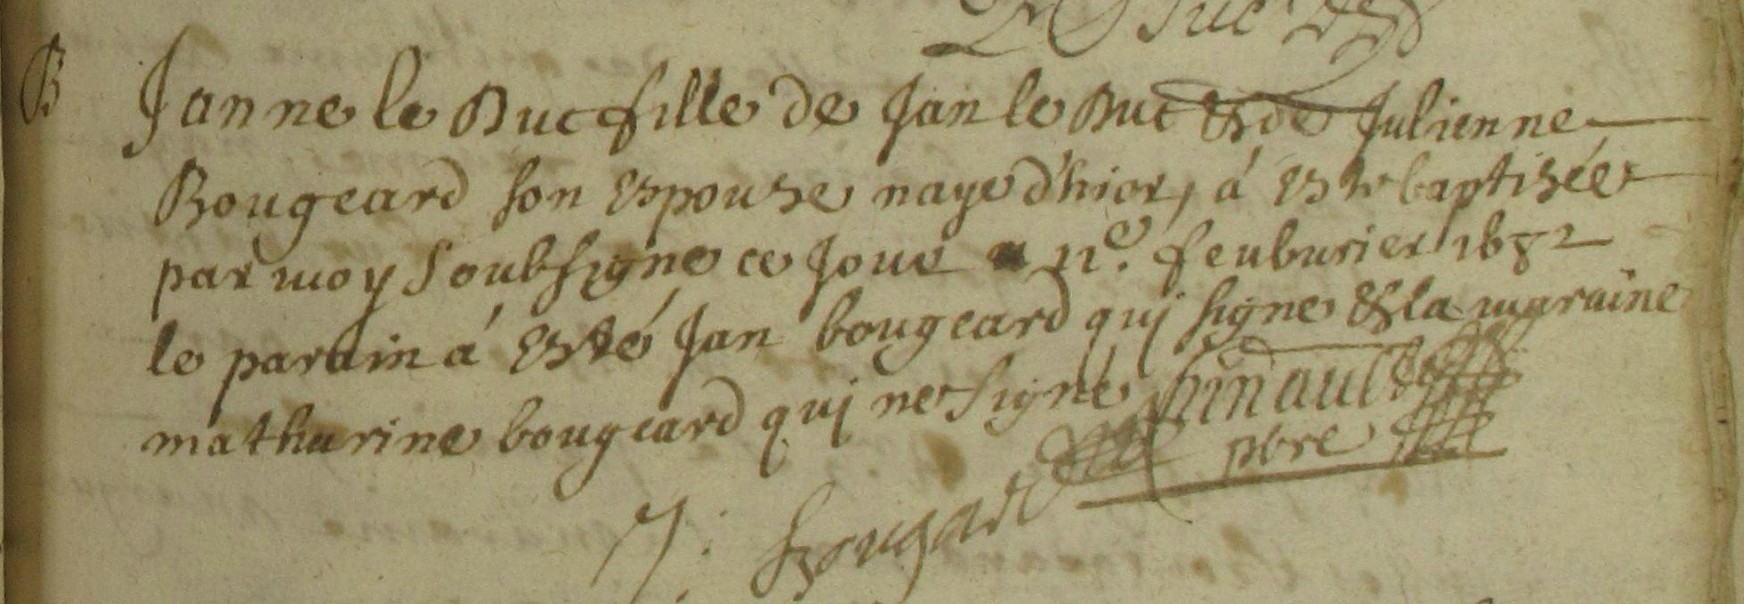 B
Janne le Buc fille de Jan le Buc & de Julienne
Bougeard son espouze naye d'hier, á esté baptizée
par moy soubsigne ce jour 11e. feubvrier 1682
le parain á esté Jan bougeard qui signe & la maraine
mathurine bougeard qui ne signe
pbre
J: bougard